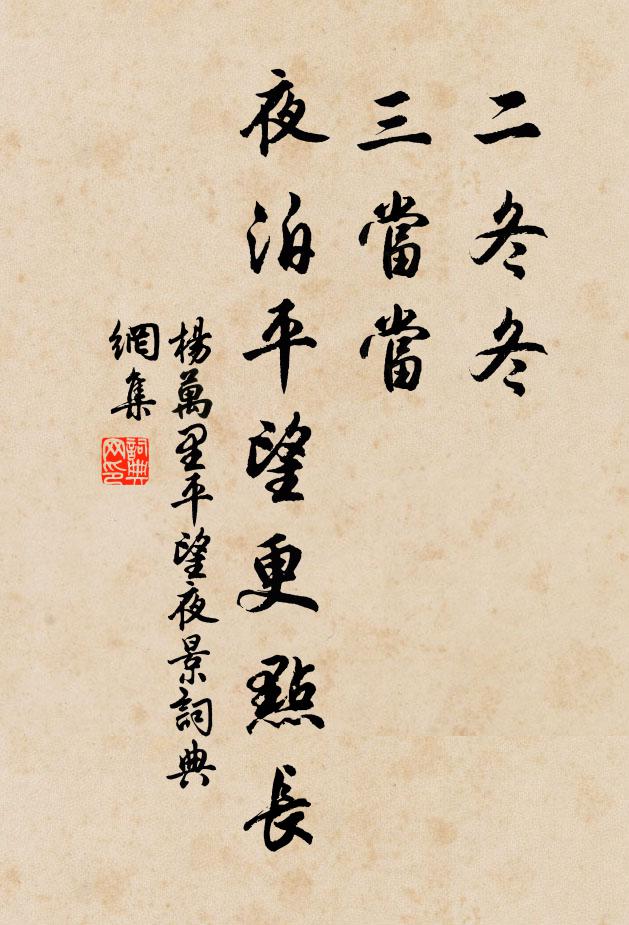 二冬冬
三當當
夜泊平望更點長
楊萬里平望夜景詞典
網集
詞典
网印